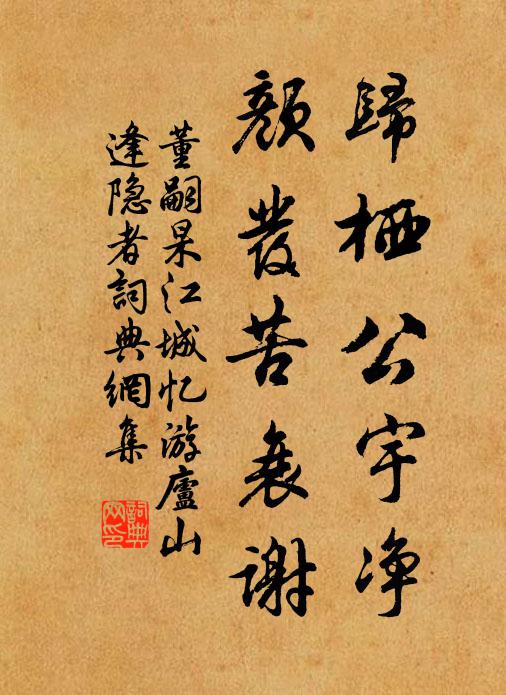 歸栖公宇净
顏發苦衰謝
董嗣杲江城忆游廬山
逢隐者詞典網集
詞典
网印